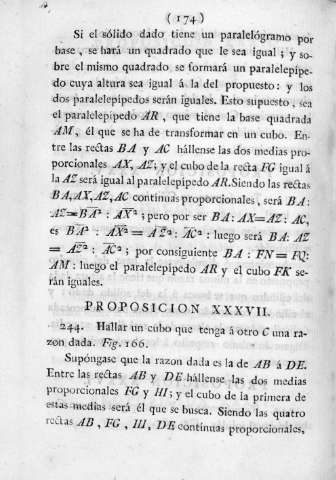 (174)
Si el sólido dado tiene un paralelógramo por
base, se hará un quadrado que le sea igual; y so-
bre el mismo quadrado se formará un paralelepípe-
do cuya altura sea igual á la del propuesto: y los
dos paralelepípedos serán iguales. Esto supuesto, sea
el paralelepípedo AR, que tiene la base quadrada
AM, él que se ha de transformar en un cubo. En-
tre las rectas BA y AC hállense las dos medias pro-
porcionales AX, AZ; y el cubo de la recta FG igual á
la AZ será igual al paralelepípedo AR. Siendo las rectas
BA, AX, AZ, AC continuas proporcionales, será BA:
AZ=BA²: AX²; pero por ser BA: AX=AZ: AC,
es BA²: AX²= AZ²: AC²: luego será BA: AZ
= AZ²: AC²; por consiguiente BA: FN= FQ:
AM: luego el paralelepípedo AR y el cubo FK se-
rán iguales.
PROPOSICION XXXVII.
244. Hallar un cubo que tenga á otro C una ra-
zon dada. Fig. 166.
Supóngase que la razon dada es la de AB á DE.
Entre las rectas AB y DE hállense las dos medias
proporcionales FG y HI; y el cubo de la primera de
estas medias será él que se busca. Siendo las quatro
rectas AB, FG, HI, DE continuas proporcionales,